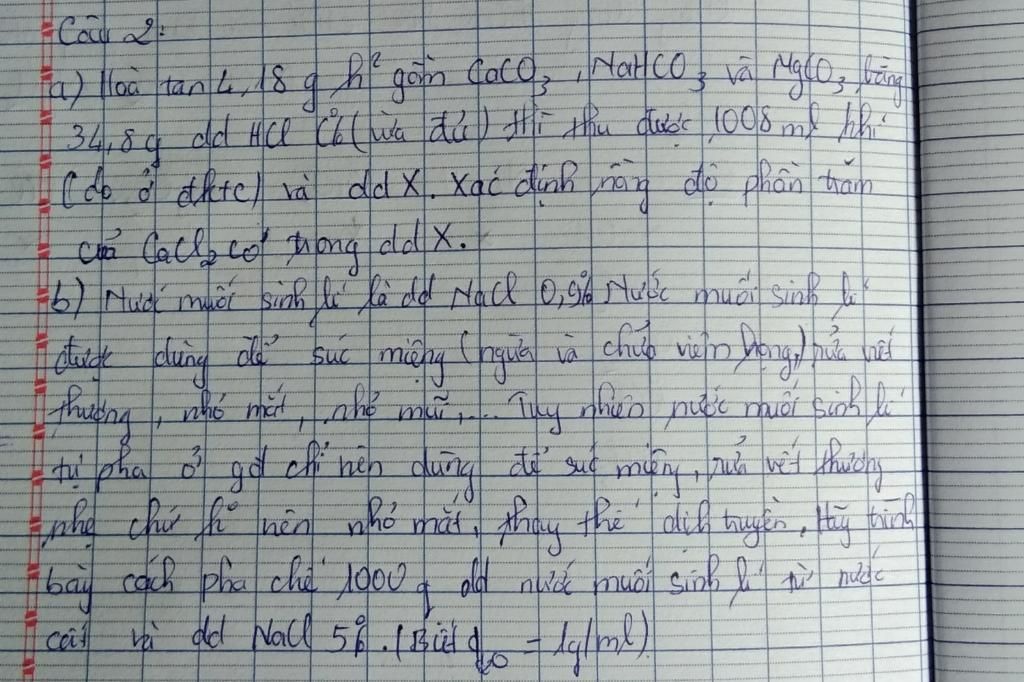 Câu 2:
a) Hoà tan 4,18 g h² gồm CaCO3, NaHCO3 và MgCO3 bằng
34,8 g dd HCl C% (vừa đủ) thì thu được 1008 ml khí
(đo ở đktc) và dd X. Xác định nồng độ phần trăm
của CaCl2 có trong dd X.
b) Nước muối sinh lí là dd NaCl 0,9% Nước muối sinh lí
được dùng để súc miệng (ngừa và chữa viêm họng), rửa vết
thương, nhỏ mắt, nhỏ mũi,... Tuy nhiên nước muối sinh lí
tự pha ở gđ chỉ nên dùng để súc miệng, rửa vết thương
nhẹ chứ k° nên nhỏ mắt, thay thế dịch truyền. Hãy trình
bày cách pha chế 1000 g dd nước muối sinh lí từ nước
cất và dd NaCl 5%. (Biết = 1g/ml)